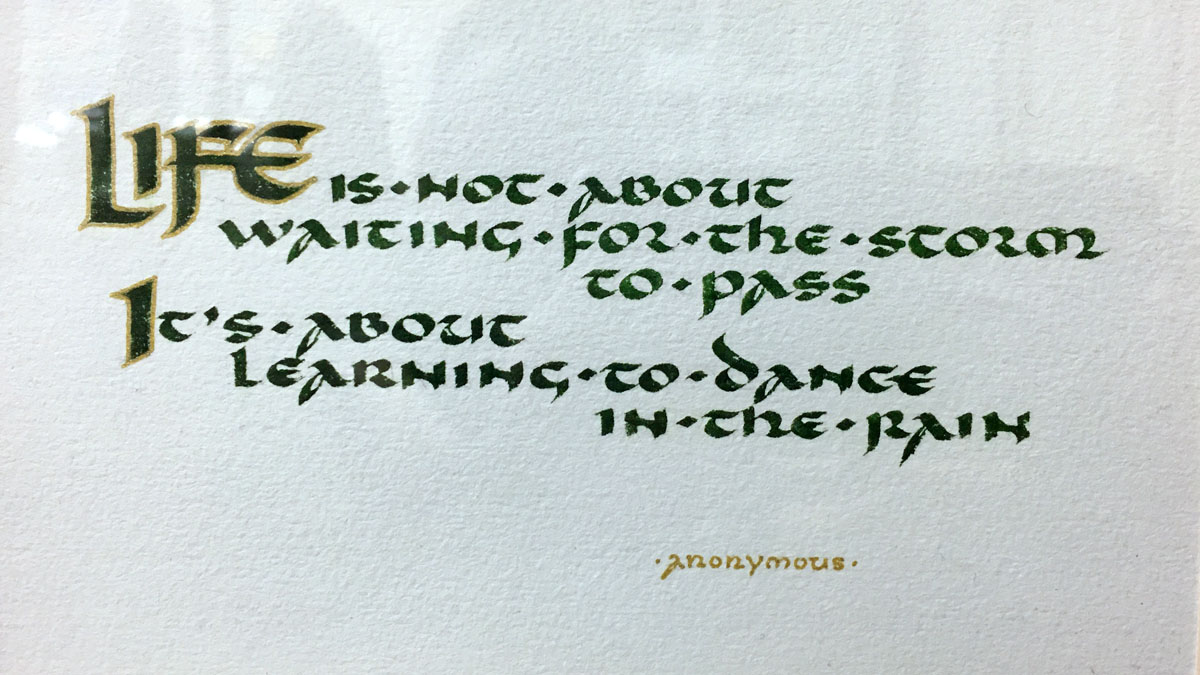 Life is·not·about
waiting·for·the·storm
to·pass
It's·about
learning·to·dance
in·the·rain
·anonymous·